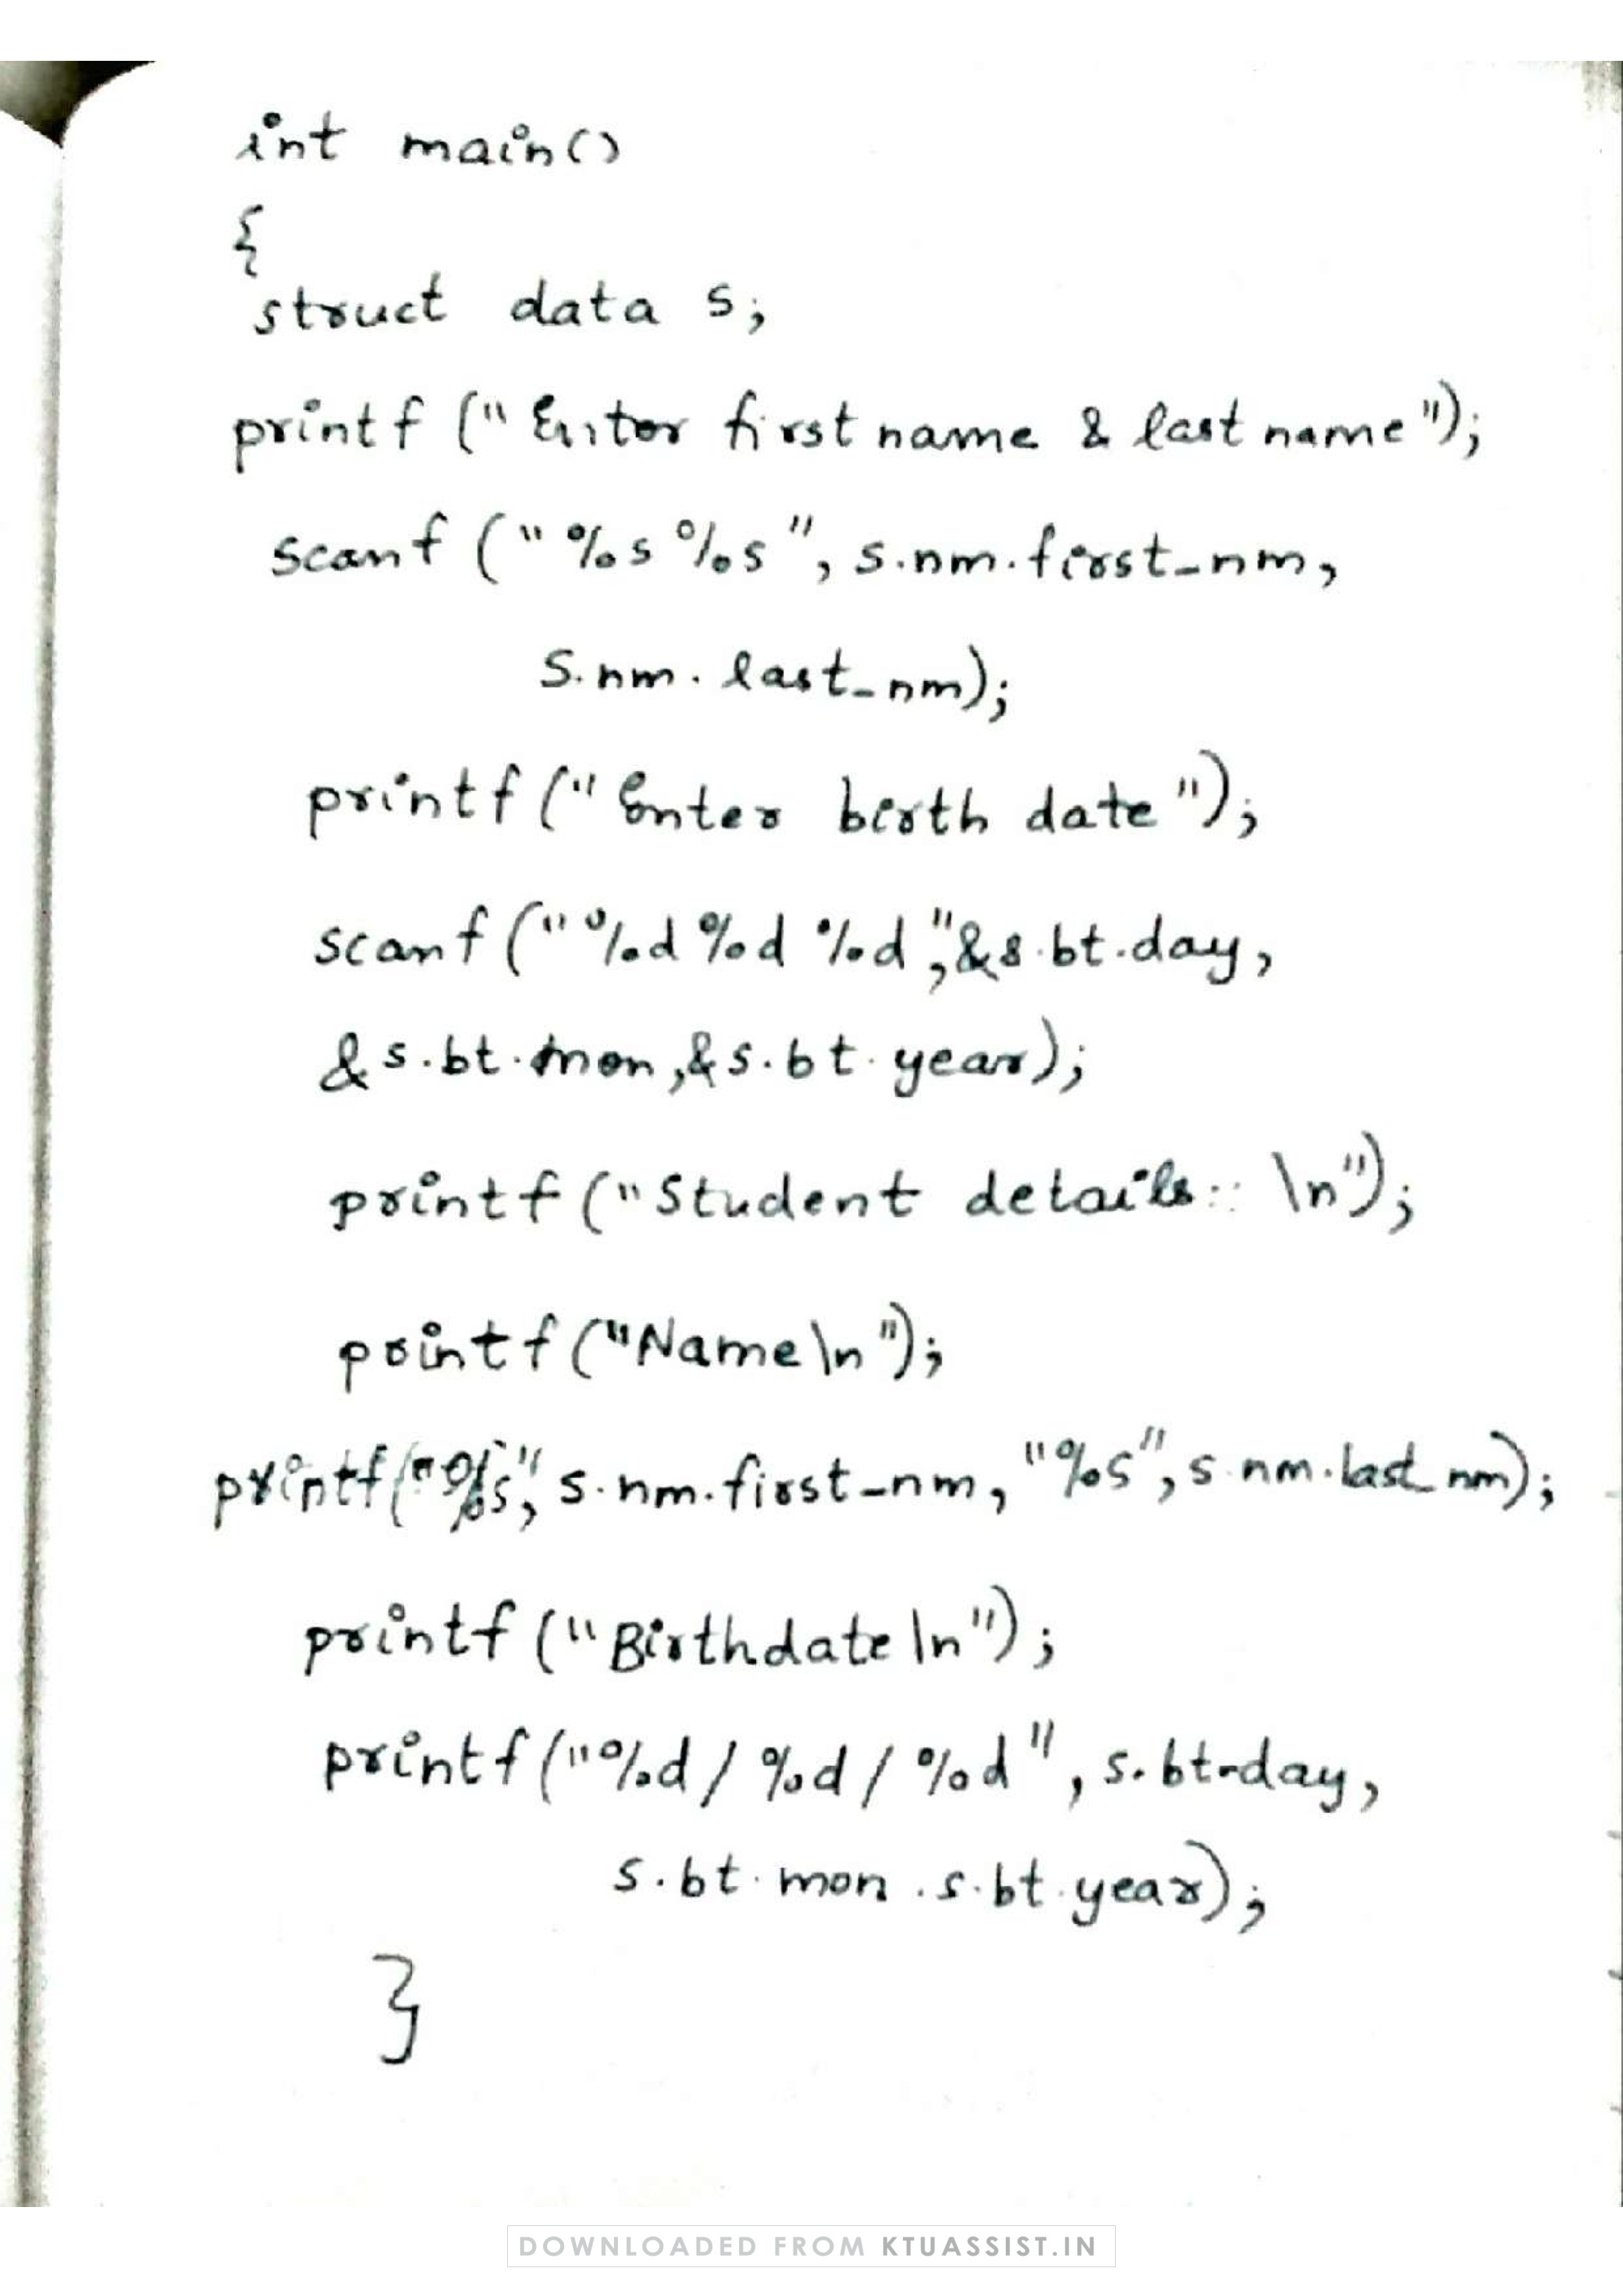 int main()
{
struct data s;
printf ("Enter first name & last name");
scanf ("%s %s", s.nm.first_nm,
s.nm.last_nm);
printf ("Enter birth date");
scanf ("%d %d %d", &s.bt.day,
&s.bt.mon, &s.bt.year);
printf ("Student details:: \n");
printf ("Name\n");
printf ("%s", s.nm.first_nm, "%s", s.nm.last_nm);
printf ("Birthdate \n");
printf ("%d / %d / %d", s.bt.day,
s.bt.mon.s.bt.year);
}
DOWNLOADED FROM KTUASSIST.IN